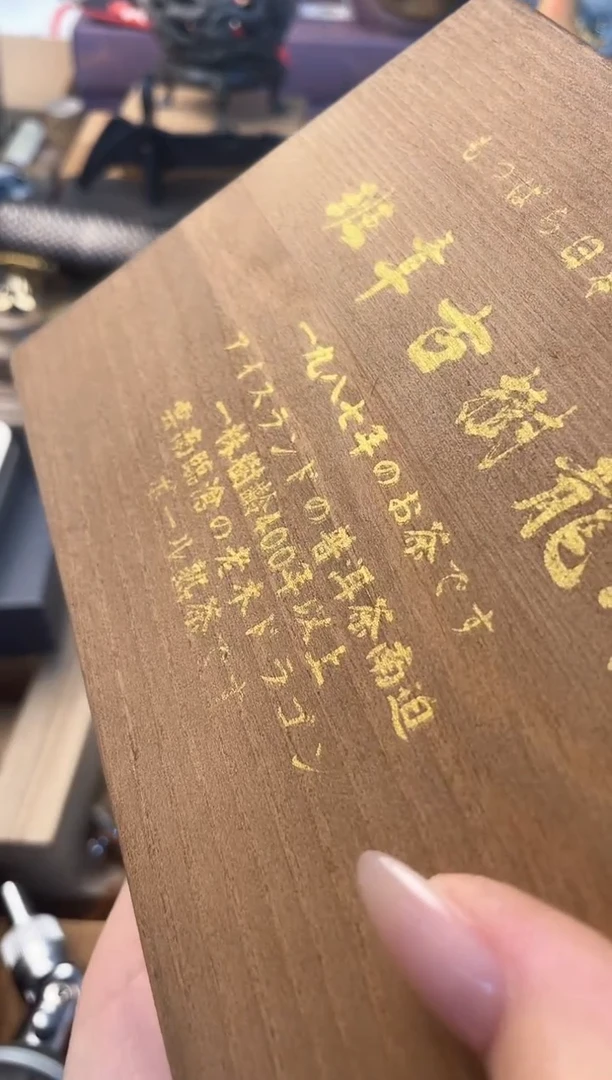 もっぱら日本
班章古樹龍
一九八七年のお茶です
アイスランドの普洱茶南迫
一株樹齢400年以上
雲南臨滄の老木ドラゴン
ボール熟茶です